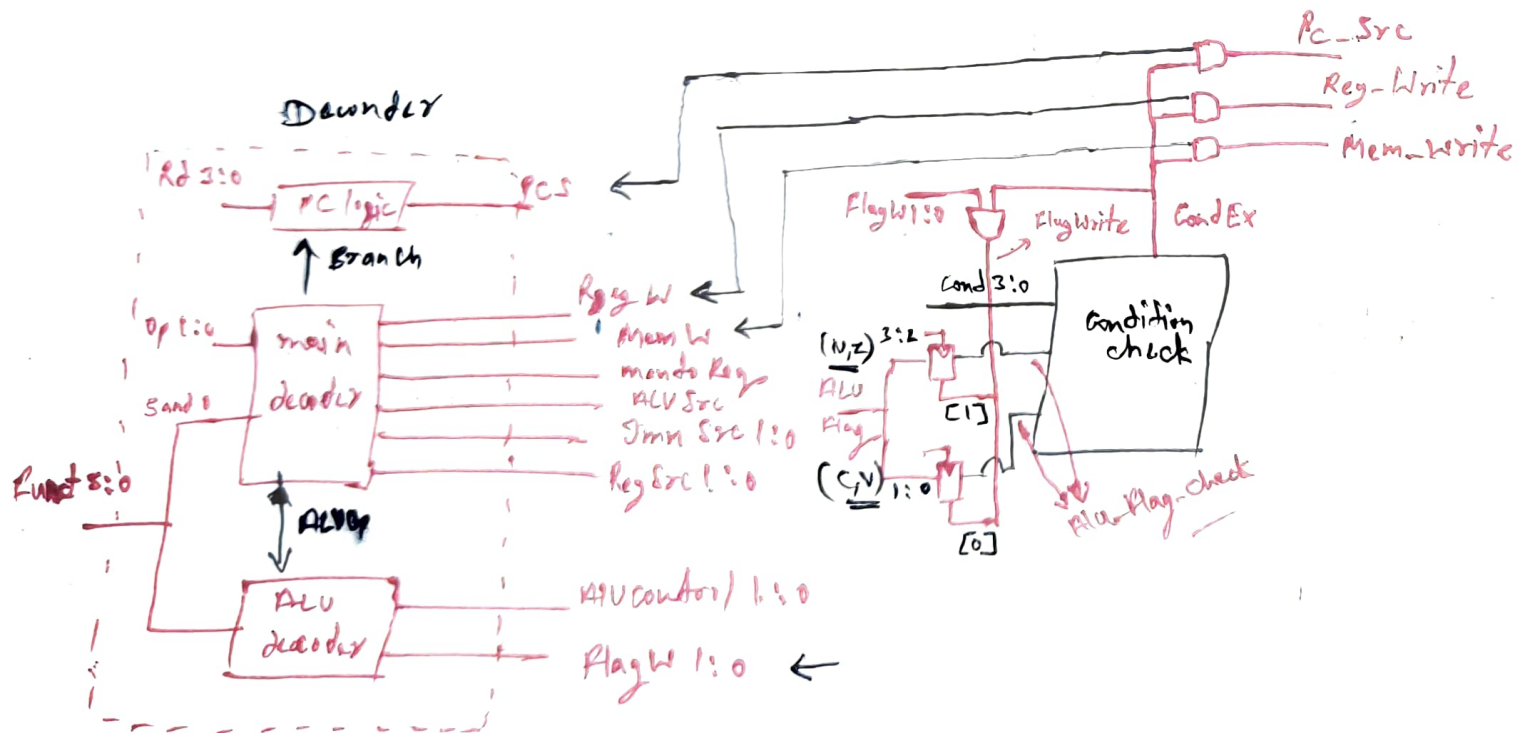 Decoder
Rd 3:0
PC logic
PCS
Branch
Op 1:0
main
decoder
5 and 0
Funct 5:0
ALUOp
ALU
decoder
Reg W
Mem W
memto Reg
ALU Src
Imm Src 1:0
Reg Src 1:0
ALU control 1:0
Flag W 1:0
Pc_Src
Reg-Write
Mem_Write
FlagW 1:0
FlagWrite
CondEx
Cond 3:0
Condition
check
(N,Z) 3:2
ALU
Flag
[1]
(C,V) 1:0
[0]
Alu_Flag_check